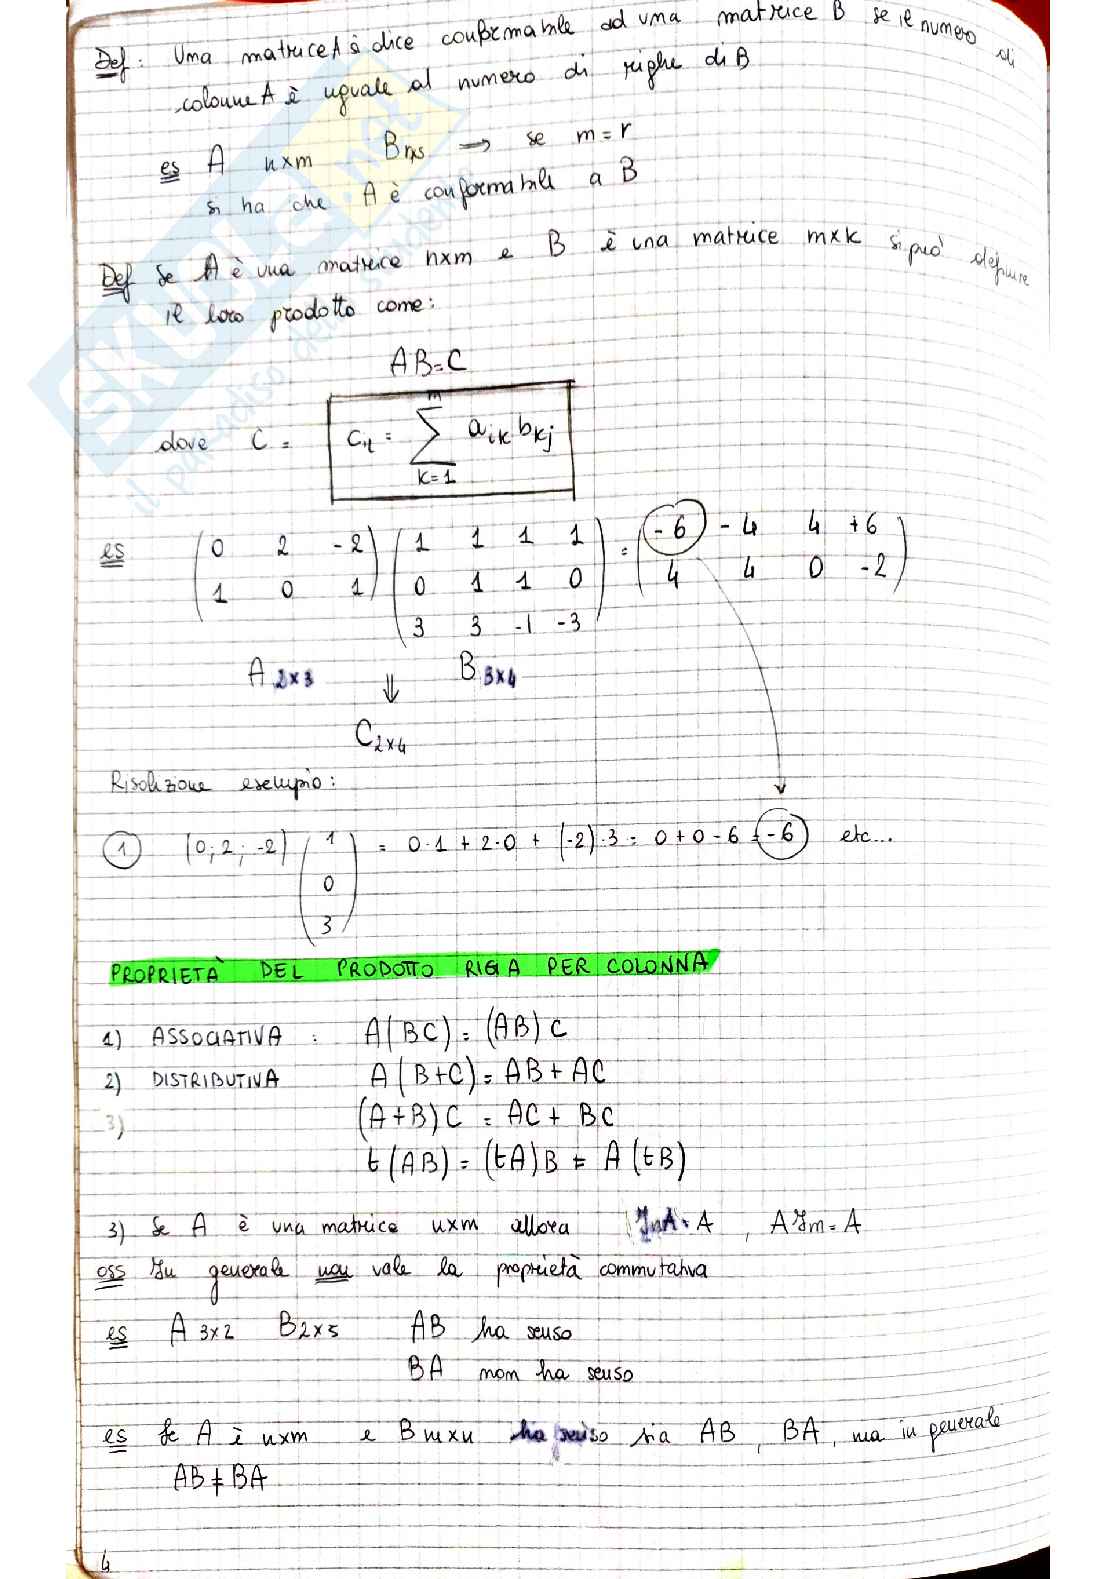 Def: Una matrice A si dice conformabile ad una matrice B se il numero di
colonne A è uguale al numero di righe di B
es A n×m B r×s → se m=r
si ha che A è conformabile a B
Def Se A è una matrice n×m e B è una matrice m×k si può definire
il loro prodotto come:
AB=C
dove C = c = ∑ₖ₌₁ᵐ aᵢₖ bₖⱼ
es (0 2 -2) (1 1 1 1) = (-6 -4 4 +6)
(1 0 1) (0 1 1 0) (4 4 0 -2)
(3 3 -1 -3)
A 2×3 B 3×4
⇓
C 2×4
Risoluzione esempio:
1 (0; 2; -2) (1 = 0·1 + 2·0 + (-2)·3 = 0+0-6 = -6 etc...
0
3)
PROPRIETÀ DEL PRODOTTO RIGA PER COLONNA
1) ASSOCIATIVA : A(BC) = (AB)C
2) DISTRIBUTIVA A(B+C) = AB + AC
3) (A+B)C = AC + BC
t(AB) = (tA)B = A(tB)
3) Se A è una matrice n×m allora InA = A , A Im = A
oss In generale non vale la proprietà commutativa
es A 3×2 B 2×5 AB ha senso
BA non ha senso
es Se A è n×m e B m×n ha senso sia AB, BA, ma in generale
AB ≠ BA
4
SKUOLA.net
il paradiso dello studente